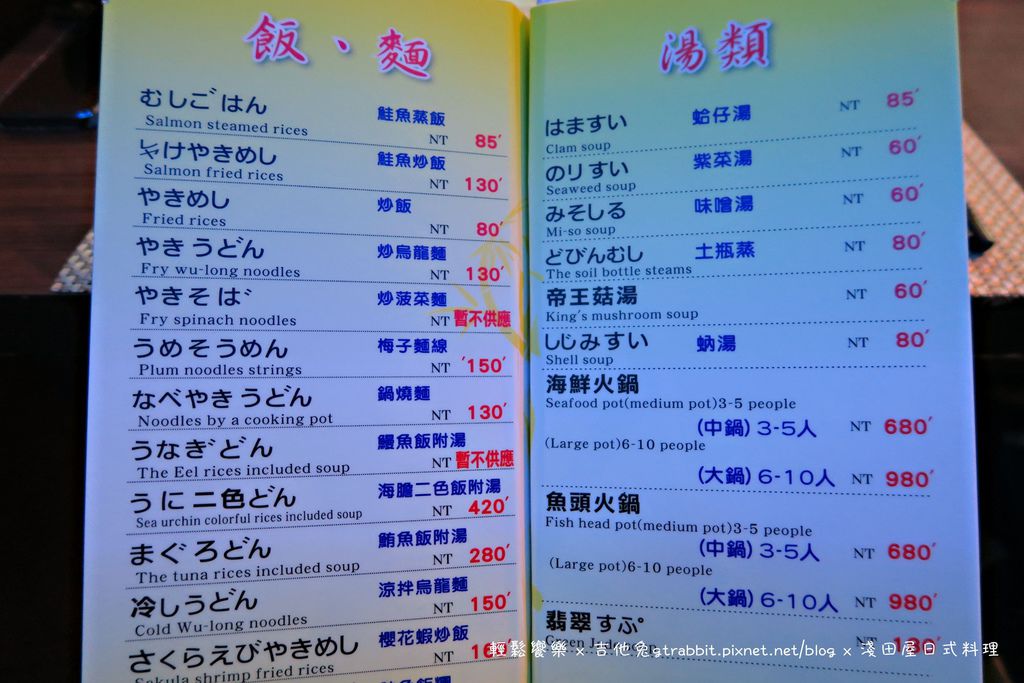 飯、麵
むしごはん 鮭魚蒸飯
Salmon steamed rices NT 85'
しゃけやきめし 鮭魚炒飯
Salmon fried rices NT 130'
やきめし 炒飯
Fried rices NT 80'
やきうどん 炒烏龍麵
Fry wu-long noodles NT 130'
やきそば 炒菠菜麵
Fry spinach noodles NT 暫不供應
うめそうめん 梅子麵線
Plum noodles strings NT '150'
なべやきうどん 鍋燒麵
Noodles by a cooking pot NT 130'
うなぎどん 鰻魚飯附湯
The Eel rices included soup NT 暫不供應
うに二色どん 海膽二色飯附湯
Sea urchin colorful rices included soup NT 420'
まぐろどん 鮪魚飯附湯
The tuna rices included soup NT 280'
冷しうどん 涼拌烏龍麵
Cold Wu-long noodles NT 150'
さくらえびやきめし 櫻花蝦炒飯
Sakula shrimp fried rices NT
湯類
はますい 蛤仔湯 NT 85'
Clam soup
のりすい 紫菜湯 NT 60'
Seaweed soup
みそしる 味噌湯 NT 60'
Mi-so soup
どびんむし 土瓶蒸 NT 80'
The soil bottle steams
帝王菇湯 NT 60'
King's mushroom soup
しじみすい 蚋湯 NT 80'
Shell soup
海鮮火鍋
Seafood pot(medium pot)3-5 people
(中鍋) 3-5人 NT 680'
(Large pot)6-10 people
(大鍋) 6-10人 NT 980'
魚頭火鍋
Fish head pot(medium pot)3-5 people
(中鍋) 3-5人 NT 680'
(Large pot)6-10 people
(大鍋) 6-10人 NT 980'
翡翠すぷ
Green NT
輕鬆饗樂 x 吉他兔gtrabbit.pixnet.net/blog x 淺田屋日式料理